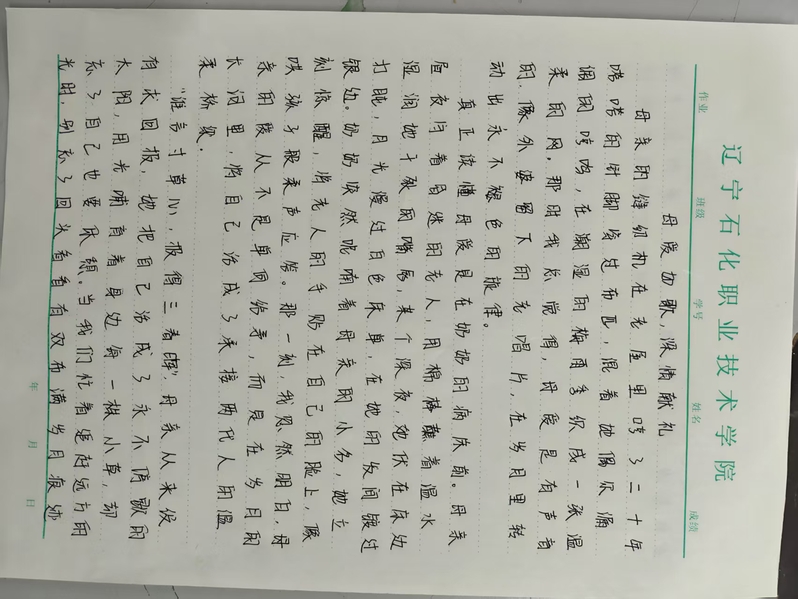 辽宁石化职业技术学院
作业 班级 学号 姓名 成绩
母爱如歌,深情献礼
母亲的缝纫机在老屋里哼了二十年
嗒嗒的针脚淌过布匹,混着她偶尔漏
调的哼鸣,在潮湿的梅雨季织成一张温
柔的网。那时我总觉得,母爱是有声音
的,像外婆留下的老唱片,在岁月里转
动出永不褪色的旋律。
真正读懂母爱是在奶奶的病床前。母亲
昼夜守着昏迷的老人,用棉棒蘸着温水
湿润她干裂的嘴唇,某个深夜,她伏在床边
打盹,月光漫过白色床单,在她的发间镀过
银边。奶奶突然呢喃着母亲的小名,她立
刻惊醒,将老人的手贴在自己的脸上,像
哄孩子般柔声应答。那一刻,我忽然明白,母
亲的爱从不是单向给养,而是在岁月的
长河里,将自己活成了承接两代人的温
柔桥梁。
"谁言寸草心,报得三春晖",母亲从来没
有求回报,她把自己活成了永不停歇的
太阳,用光哺育着身边每一株小草,却
忘了自己也要休憩。当我们忙着追赶远方的
光时,别忘了回头看看有双布满岁月痕迹
年 月 日